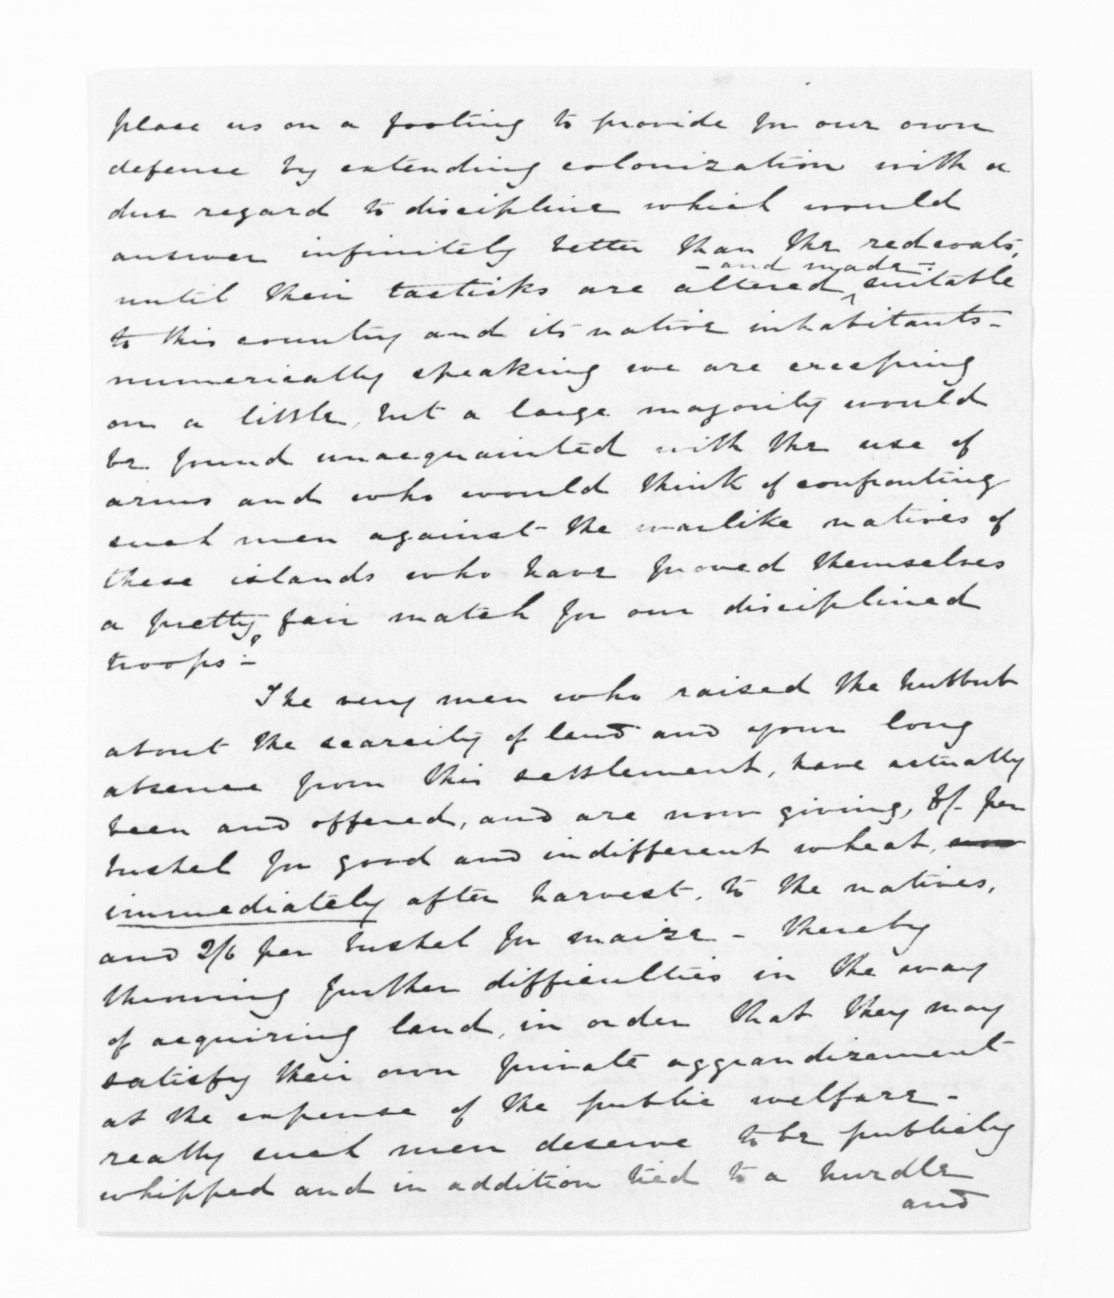 place us on a footing to provide for our own
defense by extending colonization with a
due regard to discipline which would
answer infinitely better than the redcoats,
until their tacticks are altered - and made - suitable
to this country and its native inhabitants -
numerically speaking we are creeping
on a little, but a large majority would
be found unacquainted with the use of
arms and who would think of confronting
such men against the warlike natives of
these islands who have proved themselves
a pretty fair match for our disciplined
troops?
The very men who raised the hubbub
about the scarcity of land and your long
absence from this settlement, have actually
been and offered, and are now giving, 8/- per
bushel for good and indifferent wheat,
immediately after harvest, to the natives,
and 2/6 per bushel for maize - thereby
throwing further difficulties in the way
of acquiring land, in order that they may
satisfy their own private aggrandizement
at the expense of the public welfare -
really such men deserve to be publicly
whipped and in addition tied to a hurdle
and